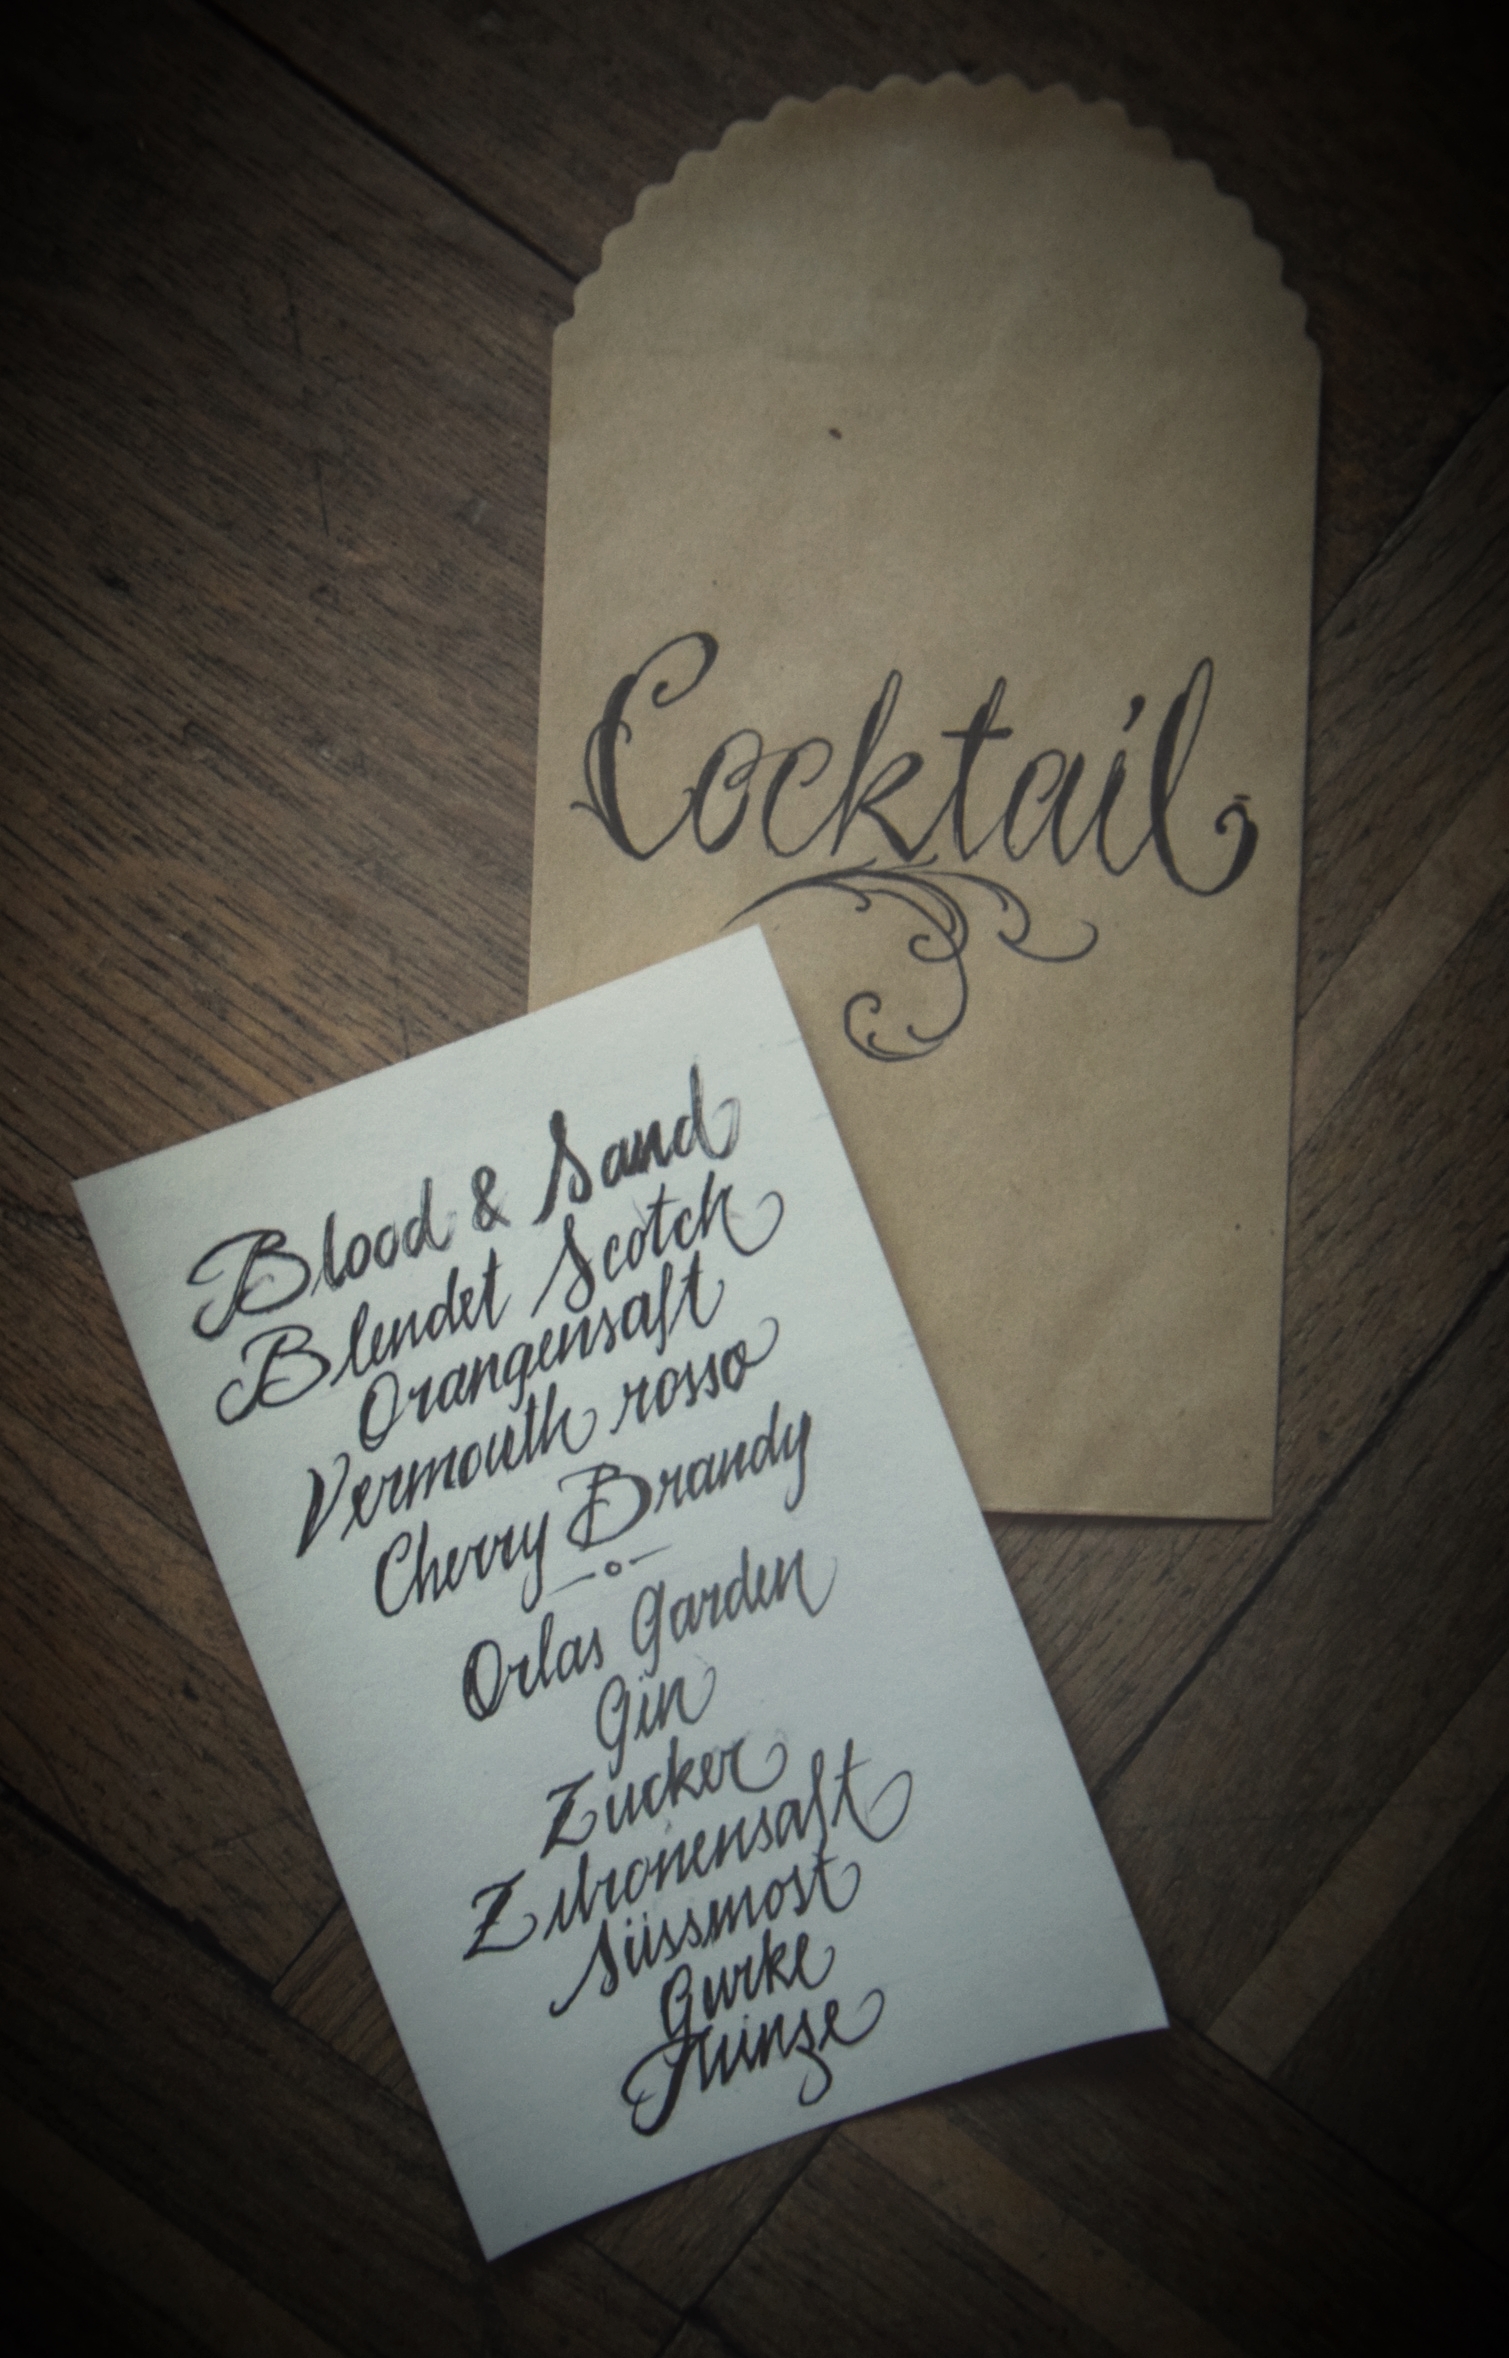 Cocktail
Blood & Sand
Blendet Scotch
Orangensaft
Vermouth rosso
Cherry Brandy
Orlas Garden
Gin
Zucker
Zitronensaft
Süssmost
Gurke
Minze